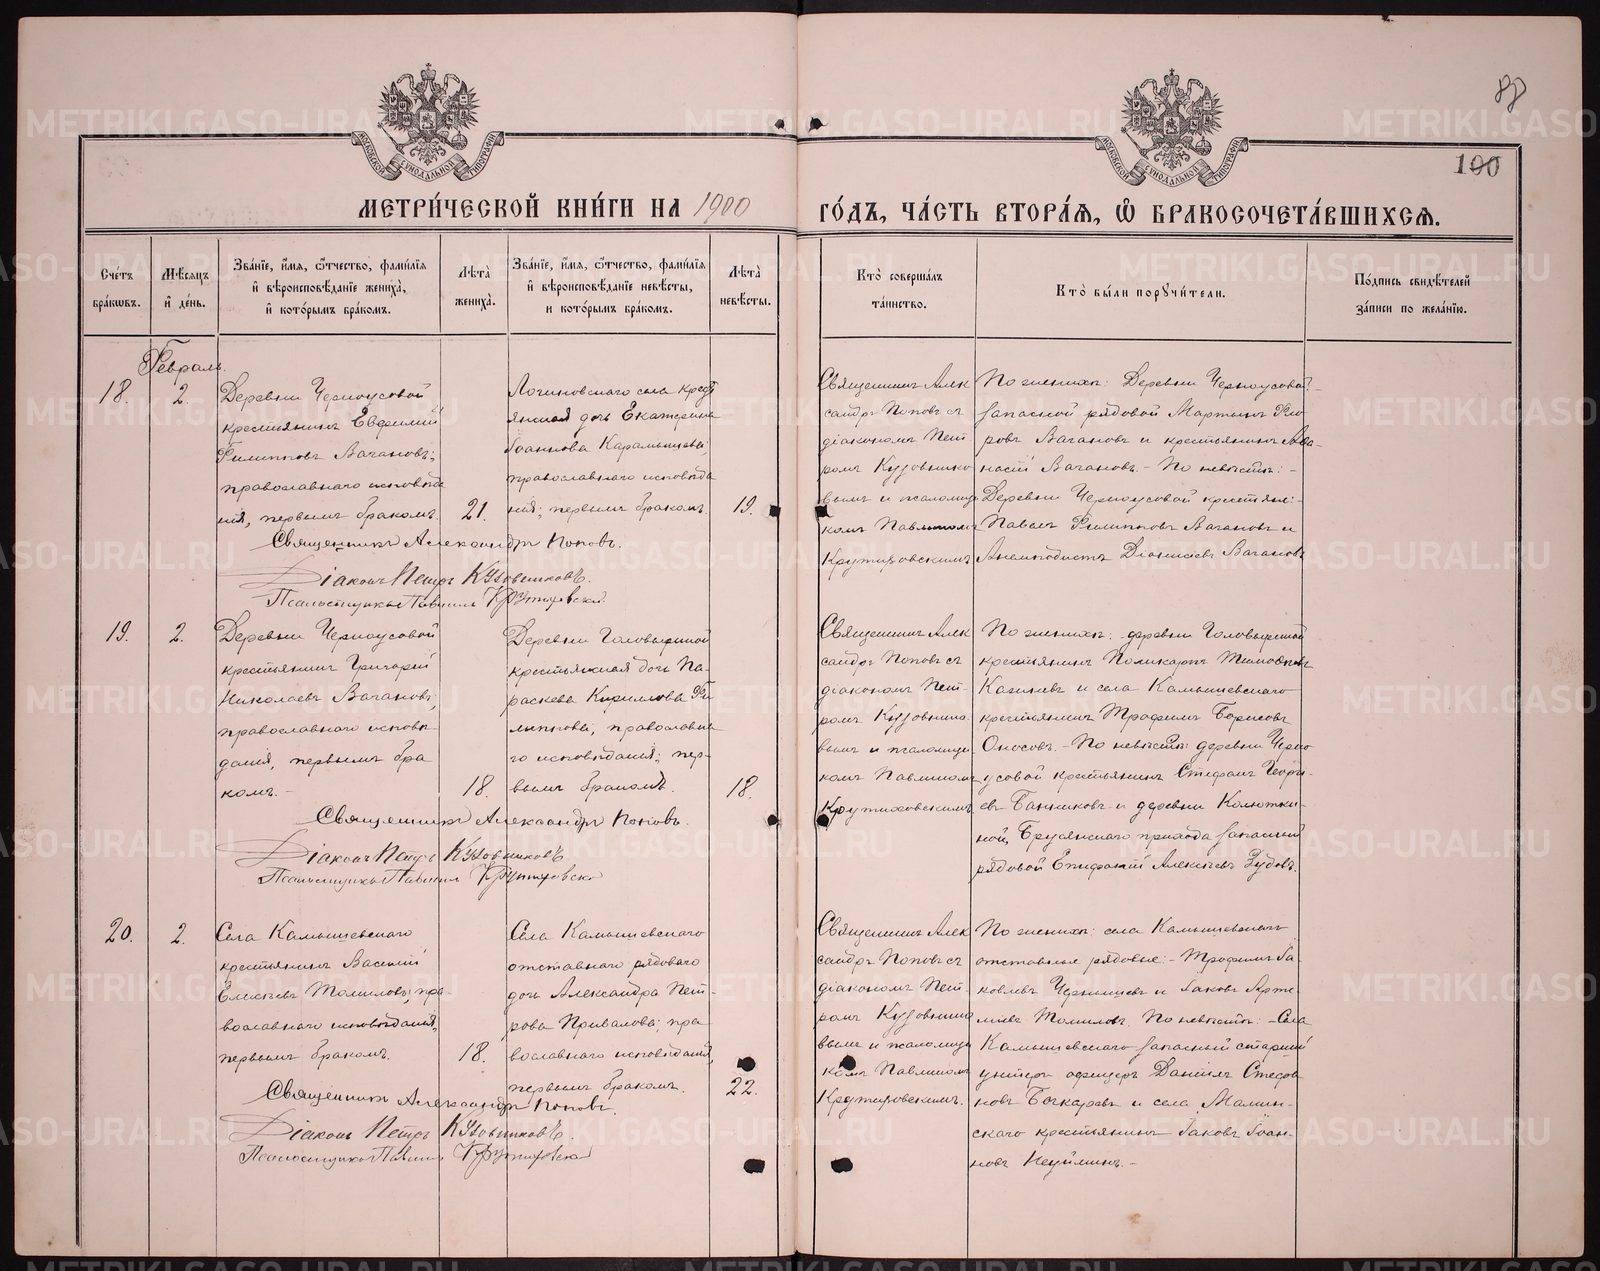 88
100
МЕТРИ́ЧЕСКОЙ КНИ́ГИ НА 1900 ГО́ДЪ, ЧА́СТЬ ВТОРА́Я, Ѡ҆ БРАКОСОЧЕТА́ВШИХСЯ.
МОСКОВСКОЙ СѴНОДАЛЬНОЙ ТИПОГРАФІИ
МОСКОВСКОЙ СѴНОДАЛЬНОЙ ТИПОГРАФІИ
Сче́тъ бра́кѡвъ.
Мѣ́сяцъ и҆ де́нь.
Зва́нїе, и҆́мя, ѻ҆́тчество, фами́лїя
и҆ вѣроисповѣ́данїе жениха̀,
и҆ кото́рымъ бра́комъ.
Лѣ́та жениха̀.
Зва́нїе, и҆́мя, ѻ҆́тчество, фами́лїя
и҆ вѣроисповѣ́данїе невѣ́сты,
и҆ кото́рымъ бра́комъ.
Лѣ́та невѣ́сты.
Кто̀ соверша́лъ та́инство.
Кто̀ бы́ли порꙋчи́тели.
По́дпись свидѣ́телей за́писи по жела́нїю.
Февраль.
18.
2.
Деревни Черноусовой
крестьянинъ Евфимий
Филипповъ Вагановъ;
православнаго исповѣда
нія, первымъ бракомъ.
21.
Логиновскаго села крест
янская дочь Екатерина
Іоаннова Карамышева;
православнаго исповѣда
нія; первымъ бракомъ.
19.
Священникъ Алек
сандръ Поповъ съ
діакономъ Пет
ромъ Кузовнико
вымъ и псаломщи
комъ Павлиномъ
Крутиховскимъ
По женихѣ: Деревни Черноусовой
запасной рядовой Мартинъ Фло
ровъ Вагановъ и крестьянинъ Афа
насій Вагановъ. - По невѣстѣ: -
Деревни Черноусовой крестьяне:
Павелъ Филипповъ Вагановъ и
Анемподистъ Діонисіевъ Вагановъ
Священникъ Александръ Поповъ.
Діаконъ Петръ Кузовниковъ.
Псаломщикъ Павлинъ Крутиховскій.
19.
2.
Деревни Черноусовой
крестьянинъ Григорій
Николаевъ Вагановъ;
православнаго исповѣ
данія, первымъ бра
комъ. -
18.
Деревни Головыриной
крестьянская дочь Па-
раскева Кириллова Фи
липпова, православна
го исповѣданія; пер-
вымъ бракомъ.
18.
Священникъ Алек
сандръ Поповъ съ
діакономъ Пет-
ромъ Кузовнико
вымъ и псаломщи
комъ Павлиномъ
Крутиховскимъ
По женихѣ: деревни Головыриной
крестьянинъ Поликарпъ Тимофеевъ
и села Камышевскаго
крестьянинъ Трофимъ Борисовъ
Оносовъ. - По невѣстѣ: деревни Черно
усовой крестьянинъ Стефанъ Георгі-
евъ Банниковъ и деревни Колютки-
ной, Брусянскаго прихода запасный
рядовой Епифаній Алексѣевъ Зубовъ.
Священникъ Александръ Поповъ.
Діаконъ Петръ Кузовниковъ
Псаломщикъ Павлинъ Крутиховскій
20.
2.
Села Камышевскаго
крестьянинъ Василій
Елисѣевъ Томиловъ, пра-
вославнаго исповѣданія,
первымъ бракомъ.
18.
Села Камышевскаго
отставнаго рядоваго
дочь Александра Пет-
рова Привалова; пра
вославнаго исповѣданія,
первымъ бракомъ.
22.
Священникъ Алек
сандръ Поповъ съ
діакономъ Пет-
ромъ Кузовнико
вымъ и псаломщи
комъ Павлиномъ
Крутиховскимъ.
По женихѣ: села Камышевскаго
отставные рядовые: - Трофимъ Іа-
ковлевъ Чернышевъ и Іаковъ Арте-
міевъ Томиловъ. По невѣстѣ: - Села
Камышевскаго запасный старший
унтеръ офицеръ Даніилъ Стефа
новъ Бочкаревъ и села Мамин-
скаго крестьянинъ Іаковъ Іоан-
новъ Неуйминъ. -
Священникъ Александръ Поповъ.
Діаконъ Петръ Кузовниковъ.
Псаломщикъ Павлинъ Крутиховскій
METRIKI.GASO-URAL.RU